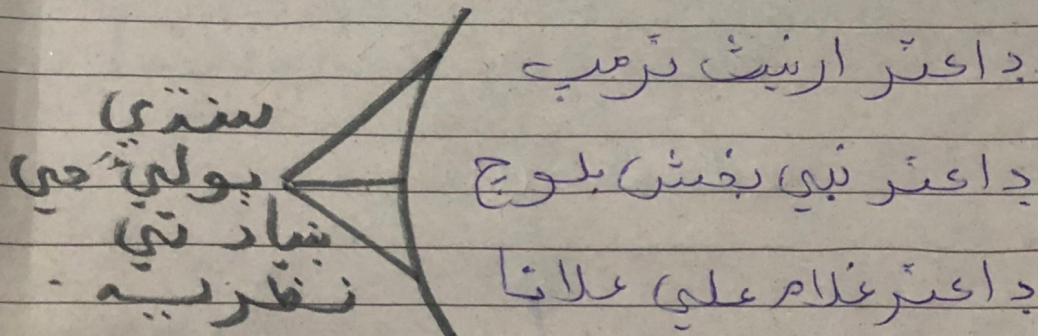 ڊاڪٽر ارنيسٽ ٽرمپ
ڊاڪٽر نبي بخش بلوچ
ڊاڪٽر غلام علي الانا
سنڌي
ٻوليءَ جي
بنياد تي
نظريه